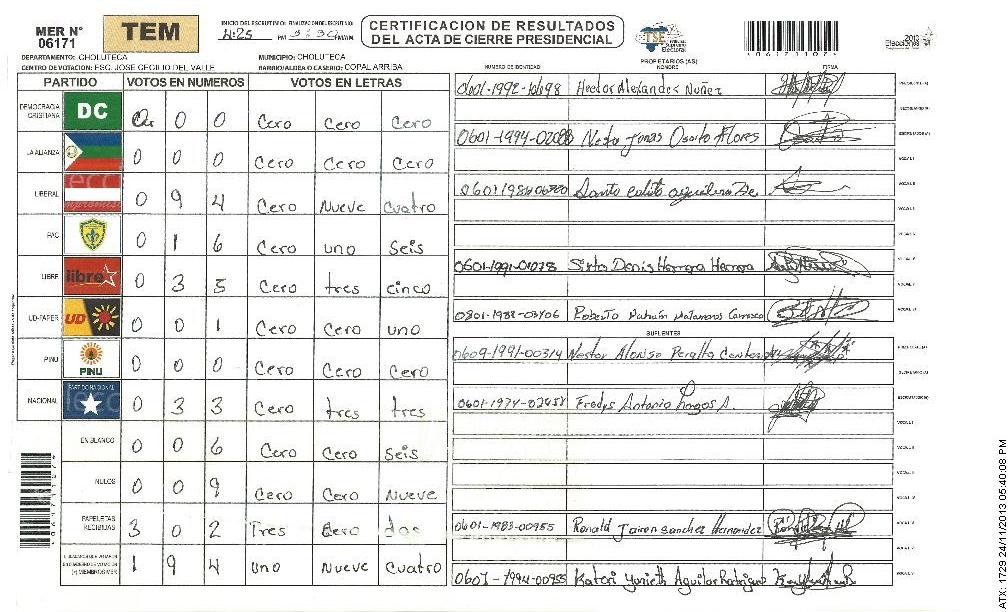 MER N° 06171
TEM
INICIO DEL ESCRUTINIO: FINALIZACION DEL ESCRITINIO:
4:25 PM
CERTIFICACION DE RESULTADOS
DEL ACTA DE CIERRE PRESIDENCIAL
TSE Tribunal Supremo Electoral
06171107
2013 Elecciones
DEPARTAMENTO: CHOLUTECA MUNICIPIO: CHOLUTECA
CENTRO DE VOTACION: ESC. JOSE CECILIO DEL VALLE BARRIO/ALDEA O CASERIO: COPAL ARRIBA
PROPIETARIOS (AS)
NUMERO DE IDENTIDAD NOMBRE FIRMA
PARTIDO VOTOS EN NUMEROS VOTOS EN LETRAS
DEMOCRACIA CRISTIANA DC 0 0 Cero Cero Cero
LA ALIANZA 0 0 0 Cero Cero Cero
LIBERAL 0 9 4 Cero Nueve Cuatro
PAC 0 1 6 Cero uno Seis
LIBRE libre 0 3 5 Cero tres cinco
UD-FAPER UD 0 0 1 Cero Cero uno
PINU PINU 0 0 0 Cero Cero Cero
NACIONAL PARTIDO NACIONAL 0 3 3 Cero tres tres
EN BLANCO 0 0 6 Cero Cero Seis
NULOS 0 0 9 Cero Cero Nueve
PAPELETAS RECIBIDAS 3 0 2 Tres Cero dos
(+) MIEMBROS MER 1 9 4 Uno Nueve Cuatro
Hector Alexander Nuñez
0601-1994-02088 Nestor Jonas Osorto Flores
0601-1991-01078 Sixto Denis Herrera Herrera
0801-1988-03406 Roberto
SUPLENTES
0609-1991-00314 Nestor Alonso Peralta
0601-1974-02458 Fredys Antonio
0601-1983-00955 Ronald Jairon Sanchez Hernandez
0601-1994-00955 Kateri Yunieth Aguilar Rodriguez
ATX: 1729 24/11/2013 05:40:08 PM